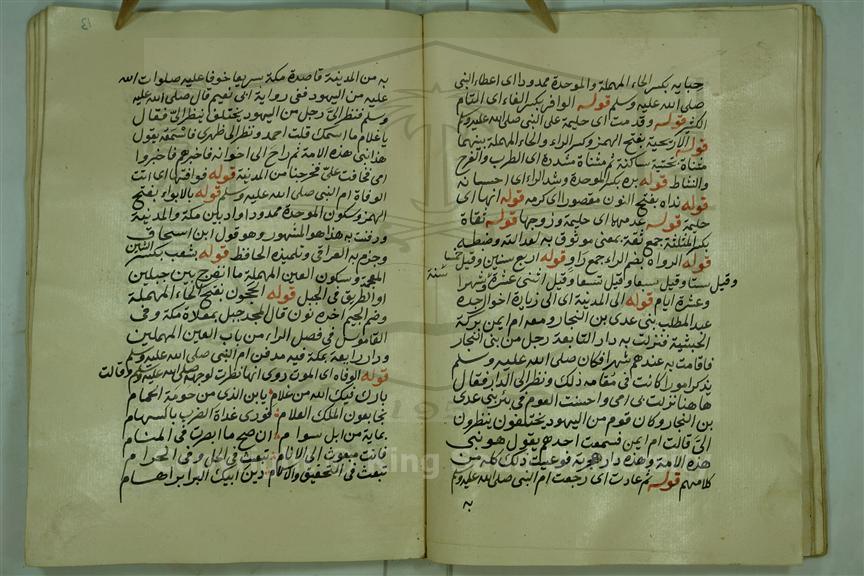 حباء به بكسر الحاء المهملة والموحدة ممدودا اى اعطاء النبى
صلى الله عليه وسلم قوله الوافر بكسر الفاء اى التام
الكثير قوله وقدمت اى حليمة على النبى صلى الله عليه وسلم
قوله الاريحية بفتح الهمز وكسر الراء والحاء المهملة بينهما
مثناة تحتية ساكنة ثم مثناة مشددة اى الطرب والفرح
والنشاط قوله بره بكسر الموحدة وشد الراء اى احسانه
قوله نداه بفتح النون مقصورا اى كرمه قوله انها اى
حليمة قوله عدمها اى حليمة وزوجها قوله ثقاة
بكسر المثلثة جمع ثقة بمعنى موثوق به لعدالته وضبطه
قوله الرواة بضم الراء جمع راو قوله اربع سنين وقيل خمسا
وقيل ستا وقيل سبعا وقيل تسعا وقيل اثنتى عشرة سنة وشهرا
وعشرة ايام قوله الى المدينة اى الى زيارة اخوال جده
عبد المطلب بنى عدى بن النجار ومعه ام ايمن بركة
الحبشية فنزلت به دار التابعة رجل من بنى النجار
فاقامت به عندهم شهرا فكان صلى الله عليه وسلم
يذكر امورا كانت فى مقامه ذلك ونظر الى الدار فقال
هاهنا نزلت بى امى واحسنت العوم فى بئر بنى عدى
بن النجار وكان قوم من اليهود يختلفون ينظرون
الى قالت ام ايمن فسمعت احدهم يقول هو نبى
هذه الامة وهذه دار هجرته فوعيت ذلك كله من
كلامهم قوله ثم عادت اى رجعت ام النبى صلى الله عليه وسلم
به
به من المدينة قاصدة مكة سريعا خوفا عليه صلوات الله
عليه من اليهود ففى رواية ابى نعيم قال صلى الله عليه
وسلم فنظر الى رجل من اليهود يختلف ينظر الى فقال
يا غلام ما اسمك قلت احمد ونظر الى ظهرى فاسمعه يقول
هذا نبى هذه الامة ثم راح الى اخوانه فاخبرهم فاخبروا
امى فخافت على فخرجنا من المدينة قوله فوافتها اى اتت
الوفاة ام النبى صلى الله عليه وسلم قوله بالابواء بفتح
الهمز وسكون الموحدة ممدودا واد بين مكة والمدينة
ودفنت به هذا هو المشهور وهو قول ابن اسحاق
وجزم به العراقى وتلميذه الحافظ قوله بشعب بكسر الشين
المعجمة وسكون العين المهملة ما انفرج بين جبلين
او الطريق فى الجبل قوله الحجون بفتح الحاء المهملة
وضم الجيم اخره نون قال المجد جبل بمعلاة مكة وفى
القاموس فى فصل الراء من باب العين المهملين
ودار رابعة بمكة فيه مدفن ام النبى صلى الله عليه وسلم
قوله الوفاه اى الموت روى انها نظرت لوجهه صلى الله عليه وسلم وقالت
بارك فيك الله من غلام يا بن الذى من حومة الحمام
نجا بعون الملك العلام فودى غداة الضرب بالسهام
بماية من ابل سوام ان صح ما ابصرت فى المنام
فانت مبعوث الى الانام تبعث فى الحل وفى الحرام
تبعث فى التحقيق والاسلام دين ابيك البر ابراهام